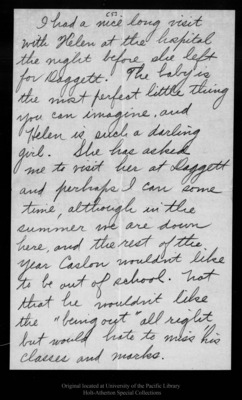 (5).
I had a nice long visit
with Helen at the hospital
the night before she left
for Daggett. The baby is
the most perfect little thing
you can imagine, and
Helen is such a darling
girl. She has asked
me to visit her at Daggett
and perhaps I can some
time, although in the
summer we are down
here, and the rest of the
year Caslon wouldn't like
to be out of school. Not
that he wouldn't like
the "being out" all right
but would hate to miss his
classes and marks.
Original located at University of the Pacific Library
Holt-Atherton Special Collections